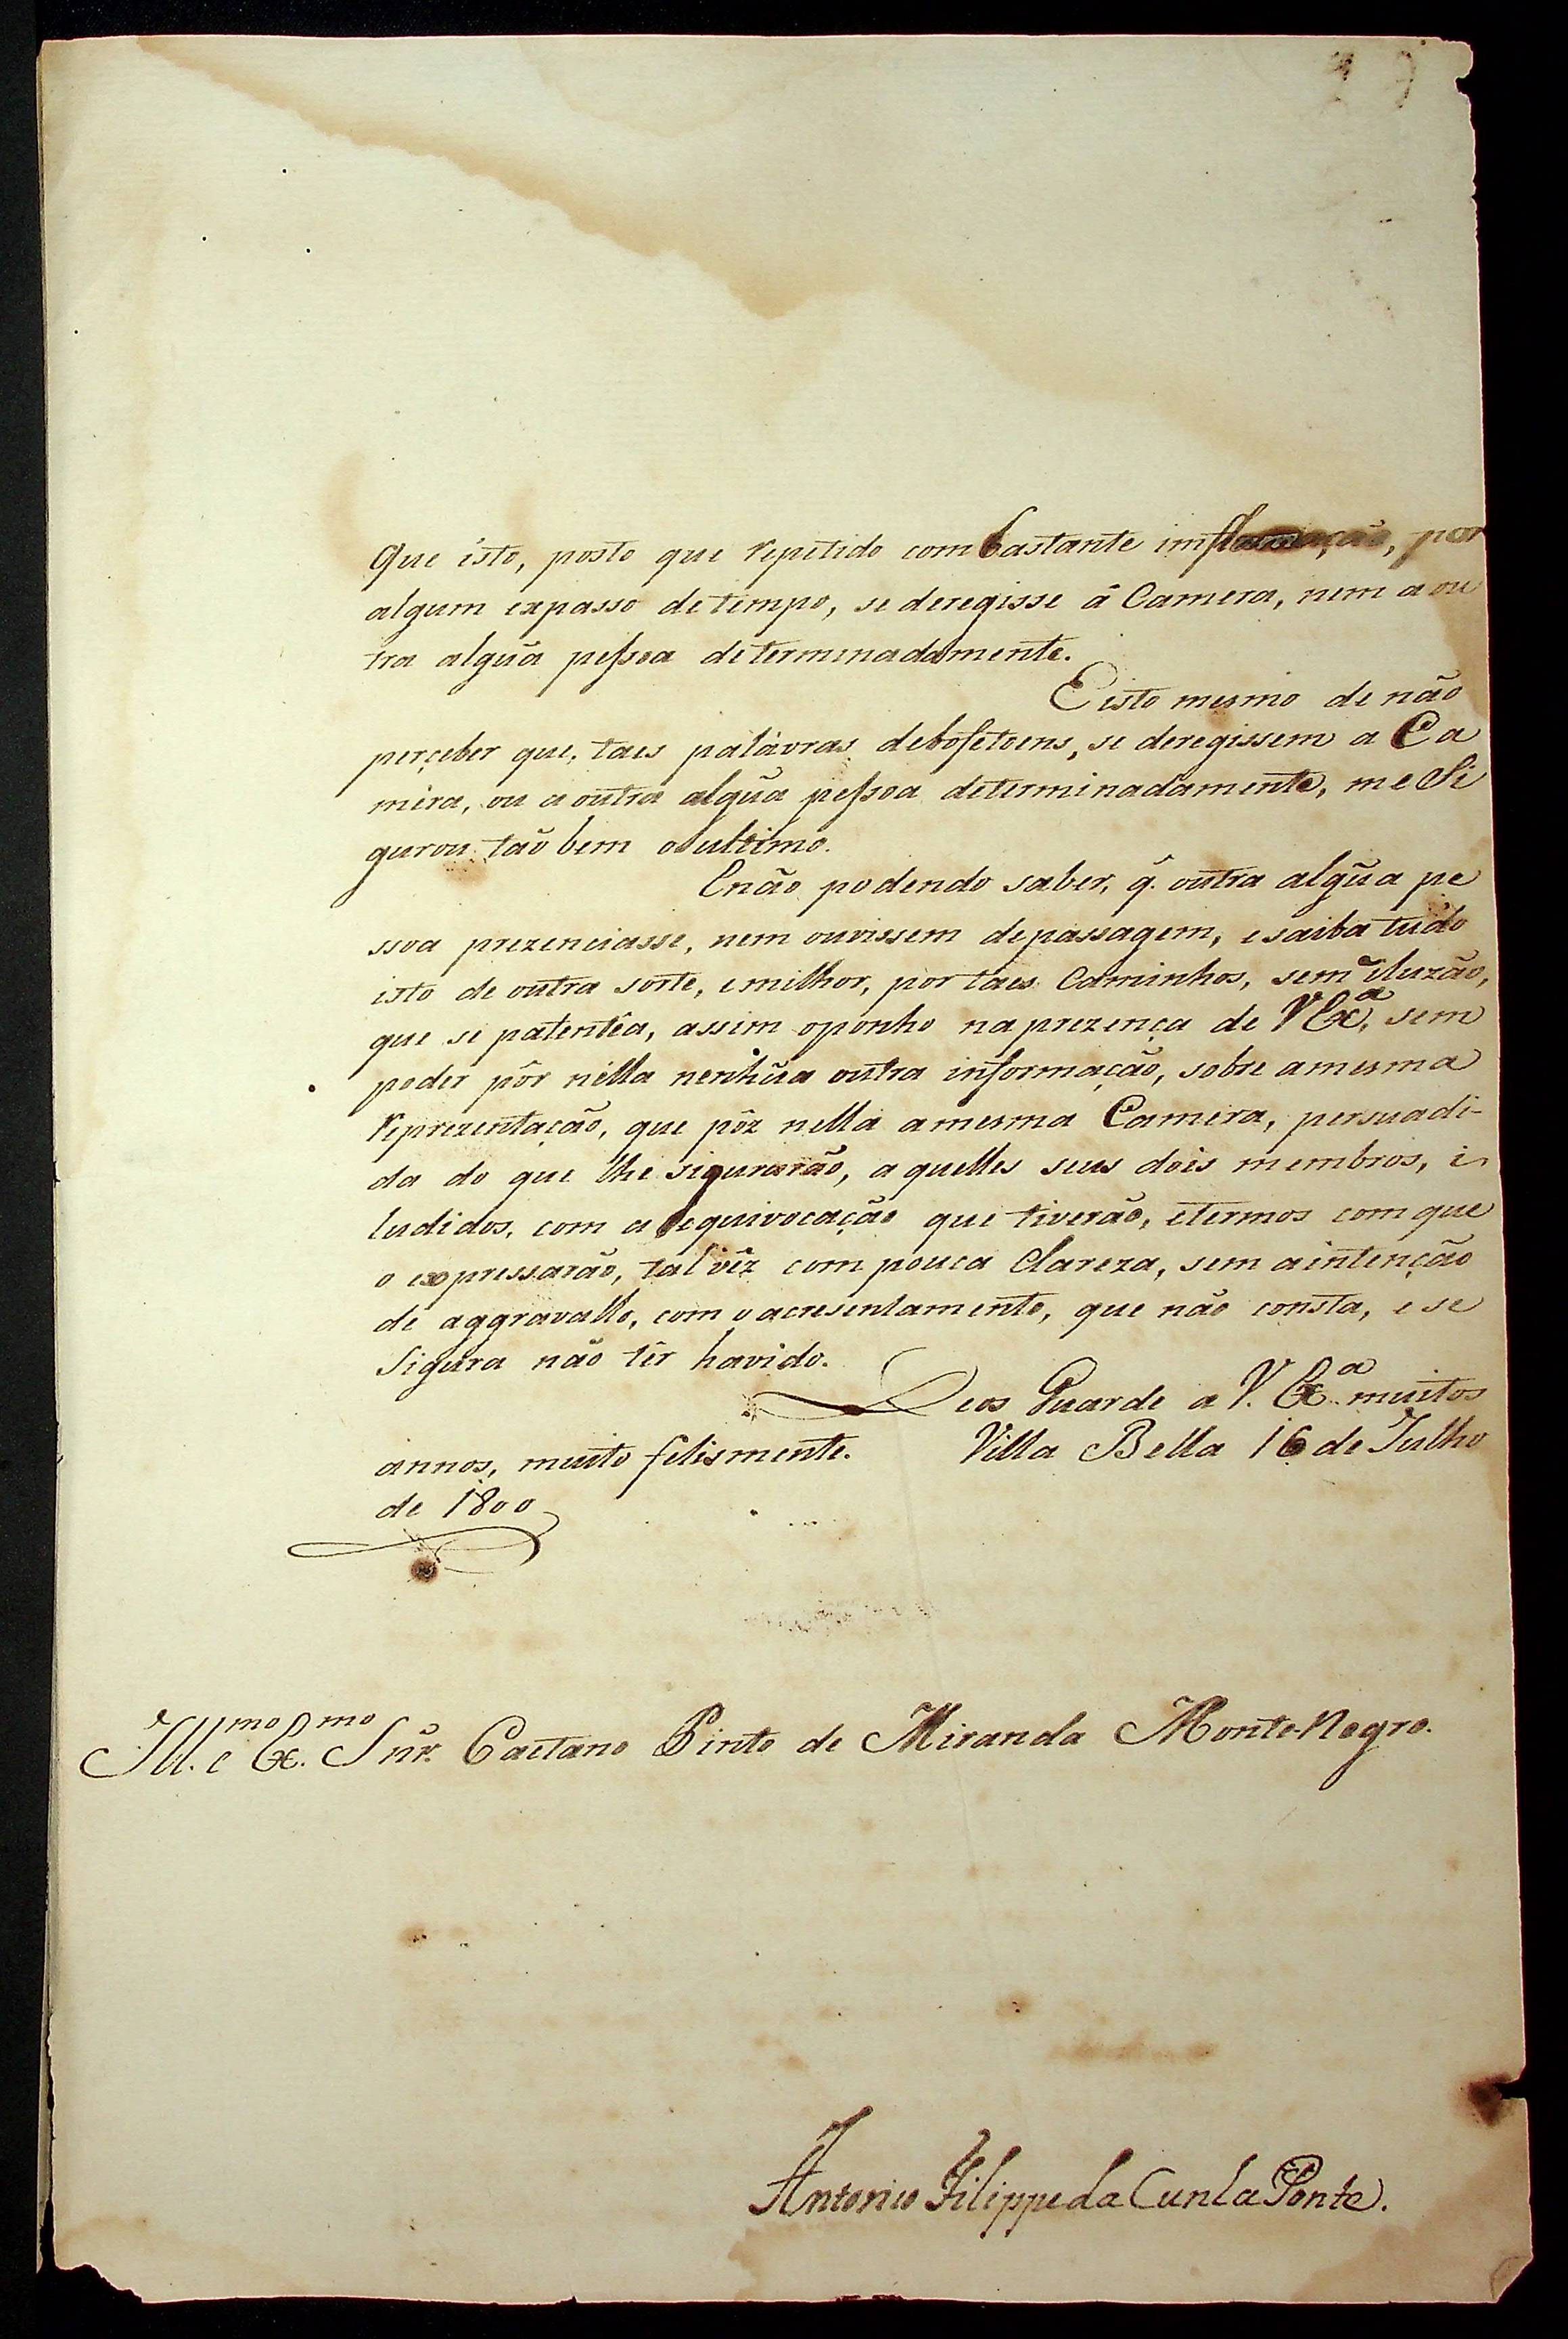 Que isto, posto que repetido com bastante imflamação, por
algum expasso de tempo, se deregisse â Camera, nem a ou
tra algũa peſsoa determinadamente.
E isto mesmo de não
perçeber que, taes palavras debofetoens, se deregissem a Ca
mera, ou a outra algũa peſsoa determinadamente, me Si
gurou tão bem o ultimo.
E não podendo saber, q̃. outra algũa pe
ssoa prezenciasse, nem ouvissem depassagem, e saiba tudo
isto de outra sorte, e milhor, por taes Caminhos, sem iluzão,
que se patentêa, assim oponho na prezença de VEx.ª, sem
poder pôr nella nenhũa outra informação, sobre amesma
reprezentação, que pôz nella amesma Camera, persuadi-
da do que lhe sigurarão, a quelles seus dois membros, i
ludidos, com a equivocação que tiverão, etermos com que
o expressarão, talvêz com pouca Clareza, sem aintenção
de aggravallo, com o acresentamento, que não consta, e se
Sigura não têr havido.
Deos Guarde a V. Ex.ª muitos
annos, muito felismente. Villa Bella 16 de Julho
de 1800
Ill.mo e Ex.mo Snr. Caetano Pinto de Miranda Monte-Negro.
Antonio Filippe da Cunha Ponte.